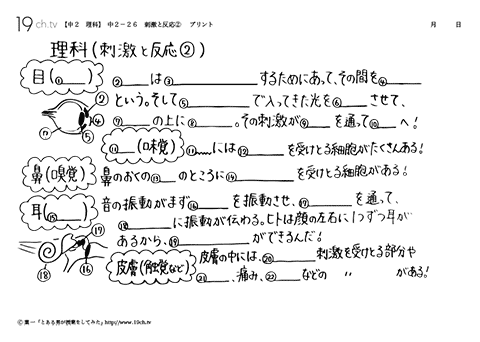 19ch.tv 【中2 理科】 中2-26 刺激と反応② プリント 月 日
理科(刺激と反応②)
目(①) ②は③するためにあって、その間を④
② という。そして⑤で入ってきた光を⑥させて、
④ ⑦の上に⑧。その刺激が⑨を通って⑩へ!
⑦ ⑤
⑪(味覚) ⑪には⑫を受けとる細胞がたくさんある!
鼻(嗅覚) 鼻のおくの⑬のところに⑭を受けとる細胞がある!
耳(⑮) 音の振動がまず⑯を振動させ、⑰を通して、
⑰ ⑱に振動が伝わる。ヒトは顔の左右に1つずつ耳が
あるから、⑲ができるんだ!
⑱ ⑯ 皮膚(触覚など) 皮膚の中には、⑳刺激を受けとる部分や
㉑、痛み、㉒などの 〃 がある!
© 葉一「とある男が授業をしてみた」http://www.19ch.tv